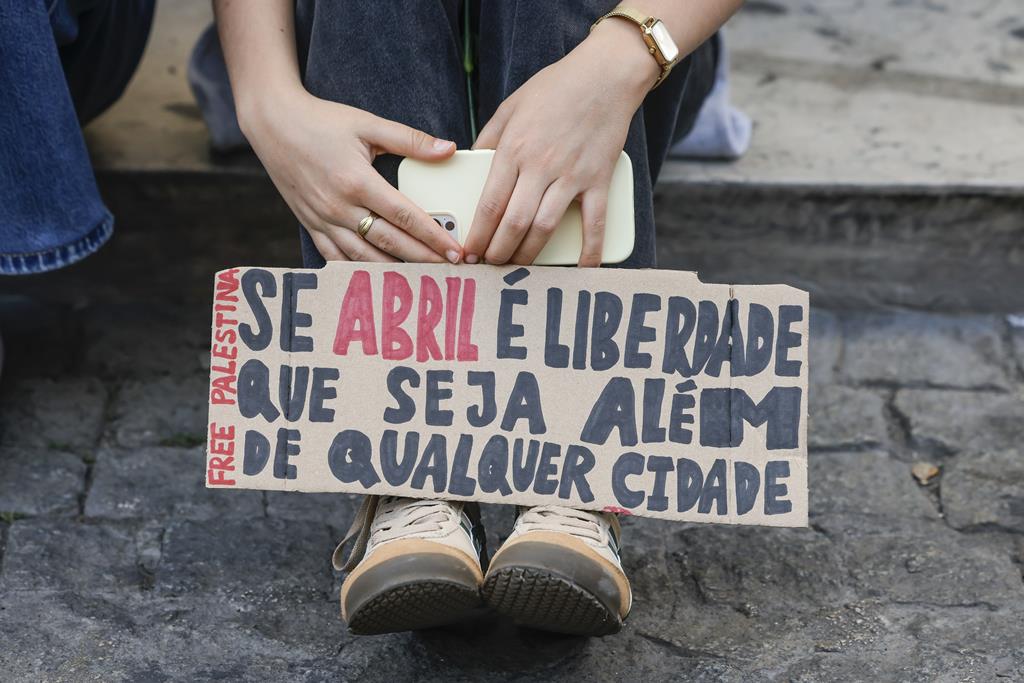 FREE PALESTINA
SE ABRIL É LIBERDADE
QUE SEJA ALÉM
DE QUALQUER CIDADE